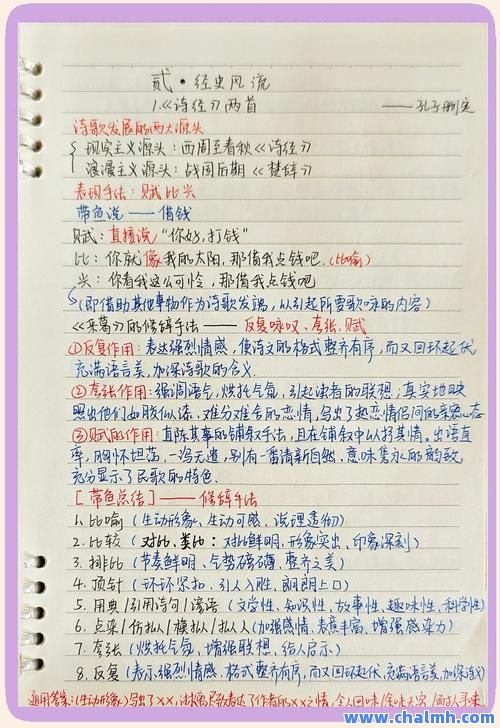 贰·经史风流
1.《诗经》两首 ——孔子删定
诗歌发展的两大源头
现实主义源头:西周至春秋《诗经》
浪漫主义源头:战国后期《楚辞》
表现手法:赋比兴
带鱼说——借钱
赋:直接说"你好,打钱"
比:你就像我的太阳,那借我点钱吧.(比喻)
兴:你看我这么可怜,那借我点钱吧
(即借助其他事物作为诗歌发端,从引起所要歌咏的内容)
《采葛》的修辞手法——反复咏叹、夸张、赋
①反复作用:表达强烈情感,使诗文的格式整齐有序,而又回环起伏
充满语言美,加深诗歌的含义.
②夸张作用:强调语气,烘托气氛,引起读者的联想;真实地映
照出他们如胶似漆、难分难舍的恋情,写出了热恋情侣间的亲密心态
③赋的作用:直陈其事的铺叙手法,且在铺叙中以抒其情。出语直
率,胸怀坦荡,一泻无遗,别有一番清新自然、意味隽永的韵致,
充分显示了民歌的特色.
[带鱼总结]——修辞手法
1.比喻(生动形象、生动可感、说理透彻)
2.比较(对比、类比:对比鲜明、形象突出、印象深刻)
3.排比(节奏鲜明、气势磅礴、整齐之美)
4.顶针(环环紧扣、引人入胜、朗朗上口)
5.用典/引用诗句/谚语(文学性、知识性、故事性、趣味性、科学性)
6.点染/仿拟/模拟/拟人(加强情感、表意丰富、增强感染力)
7.夸张(烘托气氛、增强联想、给人启示)
8.反复(表示强烈情感、格式整齐有序、而又回环起伏、充满语言美、加深含义)
通用答案:(生动形象)写出了XX,淋漓尽致表达了作者的XX之情,令人回味/
www.chalmh.com